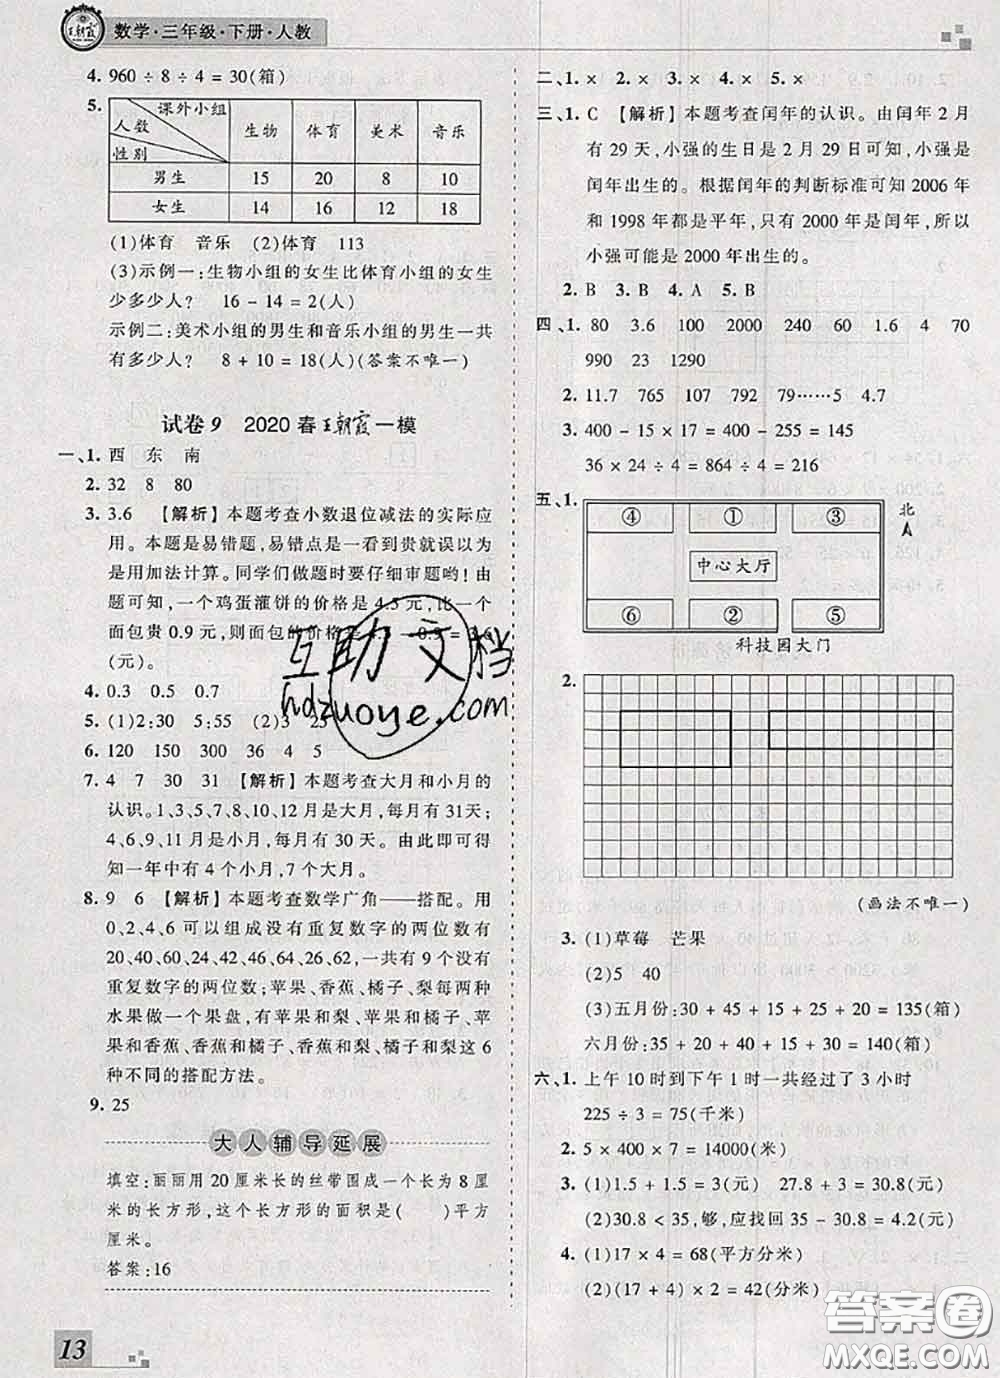 王朝霞 数学·三年级·下册·人教
4. 960 ÷ 8 ÷ 4 = 30(箱)
5. 课外小组
人数
性别
生物 体育 美术 音乐
男生 15 20 8 10
女生 14 16 12 18
(1)体育 音乐 (2)体育 113
(3)示例一:生物小组的女生比体育小组的女生
少多少人? 16 - 14 = 2(人)
示例二:美术小组的男生和音乐小组的男生一共
有多少人? 8 + 10 = 18(人)(答案不唯一)
试卷9 2020春王朝霞一模
一、1. 西 东 南
2. 32 8 80
3. 3.6 【解析】本题考查小数退位减法的实际应
用。本题是易错题,易错点是一看到贵就误以为
是用加法计算。同学们做题时要仔细审题哟! 由
题可知,一个鸡蛋灌饼的价格是 4.5 元,比一个
面包贵 0.9 元,则面包的价格是 4.5 - 0.9 = 3.6
(元)。
4. 0.3 0.5 0.7
5. (1)2:30 5:55 (2)3 25
6. 120 150 300 36 4 5
7. 4 7 30 31 【解析】本题考查大月和小月的
认识。1,3,5,7,8,10,12 月是大月,每月有 31天;
4,6,9,11 月是小月,每月有 30 天。由此即可得
知一年中有 4 个小月,7 个大月。
8. 9 6 【解析】本题考查数学广角——搭配。用
0,2,4,6 可以组成没有重复数字的两位数有
20,40,60,24,42,46,64,26,62,一共有 9 个没有
重复数字的两位数;苹果、香蕉、橘子、梨每两种
水果做一个果盘,有苹果和梨、苹果和橘子、苹果
和香蕉、香蕉和橘子、香蕉和梨、橘子和梨这 6
种不同的搭配方法。
9. 25
大人辅导延展
填空:丽丽用 20 厘米长的丝带围成一个长为 8 厘
米的长方形,这个长方形的面积是( )平方
厘米。
答案:16
13
二、1. × 2. × 3. × 4. × 5. ×
三、1. C 【解析】本题考查闰年的认识。由闰年 2 月
有 29 天,小强的生日是 2 月 29 日可知,小强是
闰年出生的。根据闰年的判断标准可知 2006 年
和 1998 年都是平年,只有 2000 年是闰年,所以
小强可能是 2000 年出生的。
2. B 3. B 4. A 5. B
四、1. 80 3.6 100 2000 240 60 1.6 4 70
990 23 1290
2. 11.7 765 107 792 79……5 4.7
3. 400 - 15 × 17 = 400 - 255 = 145
36 × 24 ÷ 4 = 864 ÷ 4 = 216
五、1. 北
④ ① ③
中心大厅
⑥ ② ⑤
科技园大门
2.
(画法不唯一)
3. (1)草莓 芒果
(2)5 40
(3)五月份:30 + 45 + 15 + 25 + 20 = 135(箱)
六月份:35 + 20 + 40 + 15 + 30 = 140(箱)
六、1. 上午 10 时到下午 1 时一共经过了 3 小时
225 ÷ 3 = 75(千米)
2. 5 × 400 × 7 = 14000(米)
3. (1)1.5 + 1.5 = 3(元) 27.8 + 3 = 30.8(元)
(2)30.8 < 35,够,应找回 35 - 30.8 = 4.2(元)
4. (1)17 × 4 = 68(平方分米)
(2)(17 + 4) × 2 = 42(分米)
互助文档
hdzuoye.com
答案圈
MXQE.COM